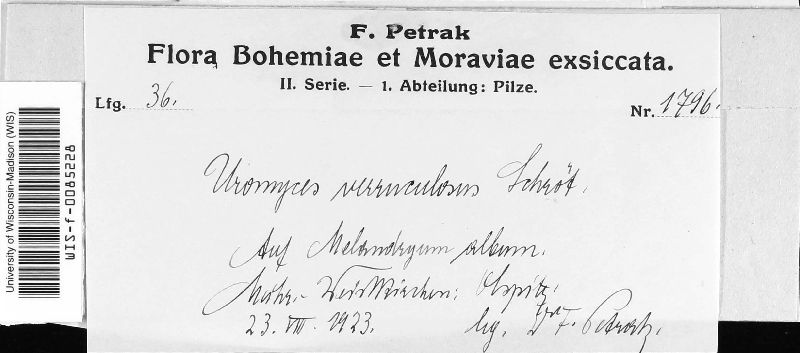 F. Petrak
Flora Bohemiae et Moraviae exsiccata.
II. Serie. — 1. Abteilung: Pilze.
Lfg. 36.
Nr. 1796.
Uromyces verruculosus Schröt.
Auf Melandryum album.
Mähr.-Weisskirchen: Ohspitz.
23. VIII. 1923. lig. F. Petrak.
University of Wisconsin-Madison (WIS)
WIS-f-0085228